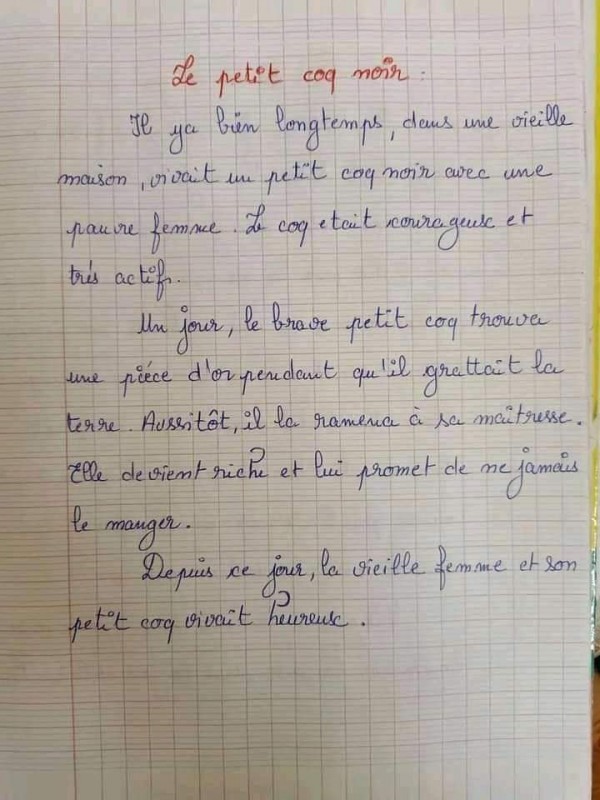 Le petit coq noir.
Il ya bien longtemps, dans une vieille
maison, vivait un petit coq noir avec une
pauvre femme. Le coq etait courageux et
trés actif.
Un jour, le brave petit coq trouva
une piéce d'or pendant qu'il grattait la
terre. Aussitôt, il la ramena à sa maîtresse.
Elle devient riche et lui promet de ne jamais
le manger.
Depuis ce jour, la vieille femme et son
petit coq vivait heureux.